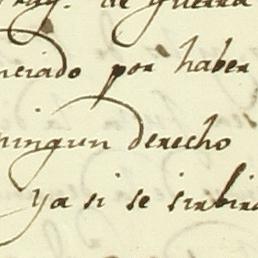 de guerra
nciado por haber
ningun derecho
ya si se sirbira